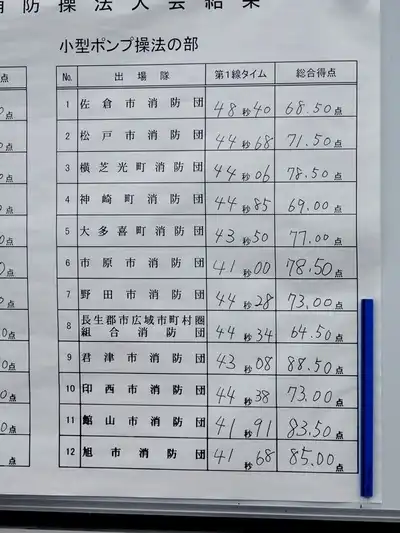 消防操法大会結果
小型ポンプ操法の部
点 No. 出場隊 第1線タイム 総合得点
点 1 佐倉市消防団 48秒40 68.50点
点 2 松戸市消防団 44秒68 71.50点
点 3 横芝光町消防団 44秒06 78.50点
点 4 神崎町消防団 44秒85 69.00点
点 5 大多喜町消防団 43秒50 77.00点
点 6 市原市消防団 41秒00 78.50点
点 7 野田市消防団 44秒28 73.00点
長生郡市広域市町村圏
点 8 組合消防団 44秒34 64.50点
点 9 君津市消防団 43秒08 88.50点
点 10 印西市消防団 44秒38 73.00点
点 11 館山市消防団 41秒91 83.50点
点 12 旭市消防団 41秒68 85.00点